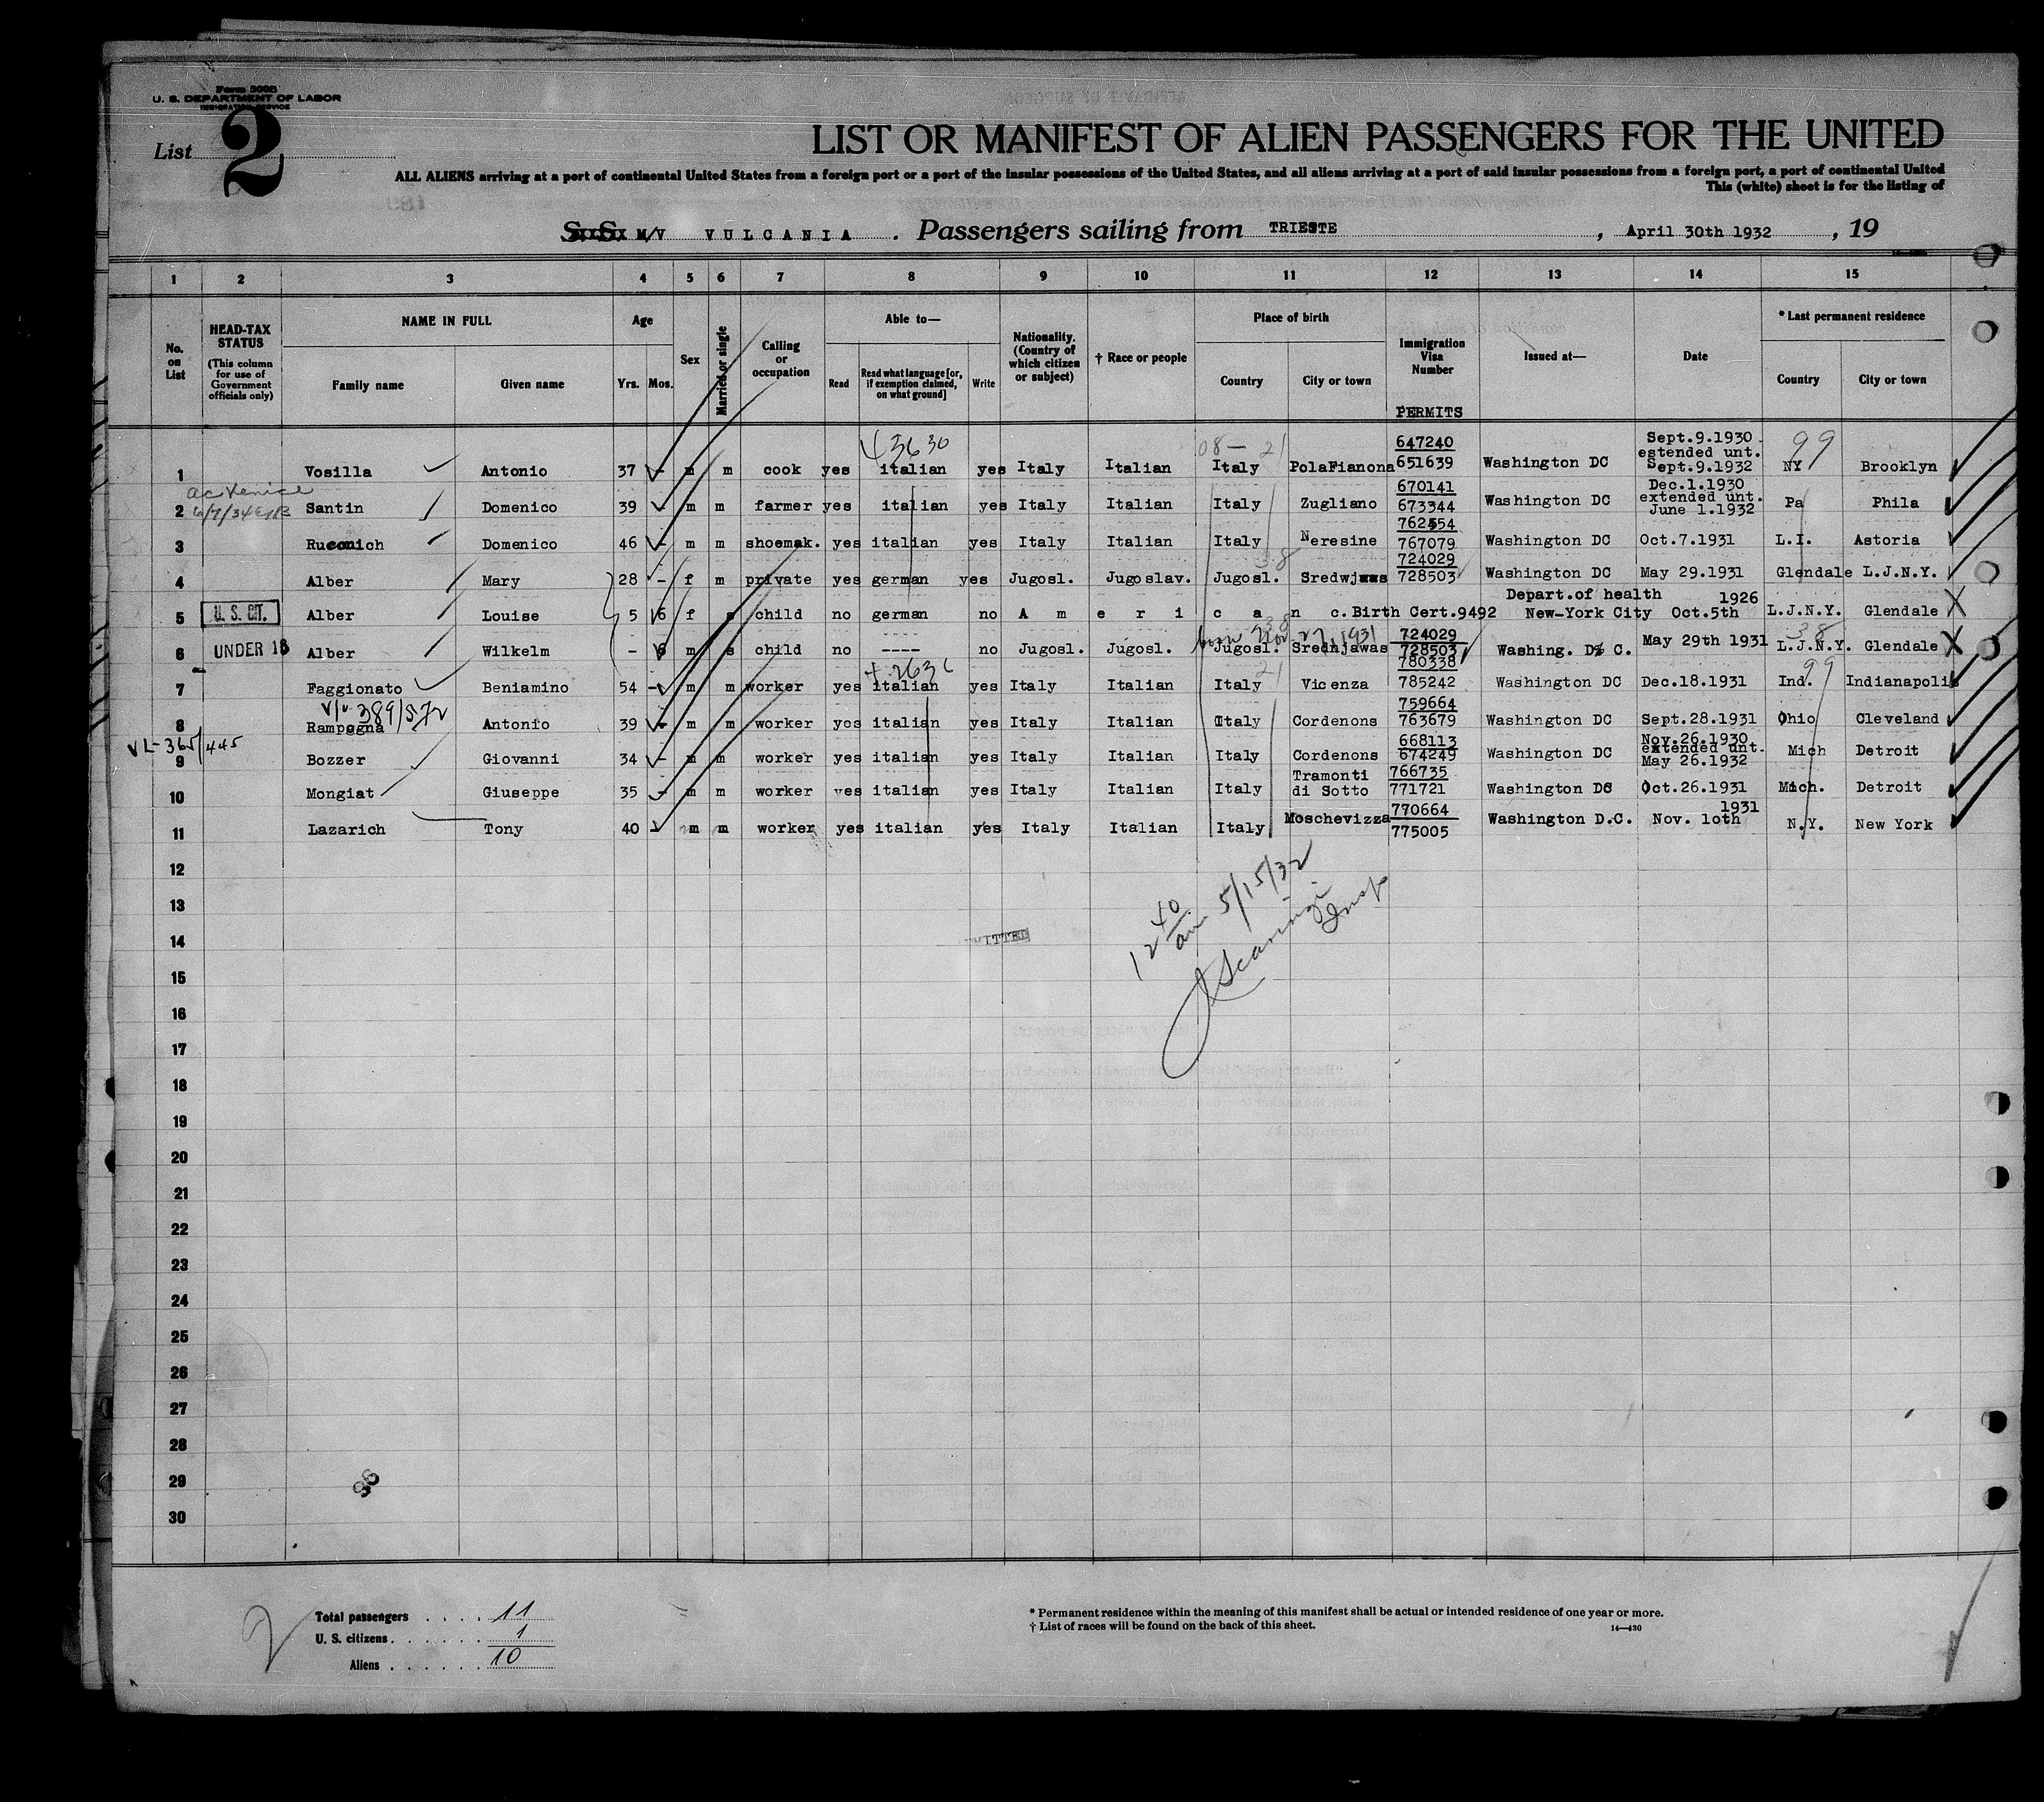 Form 500B
U. S. DEPARTMENT OF LABOR
IMMIGRATION SERVICE
List 2
LIST OR MANIFEST OF ALIEN PASSENGERS FOR THE UNITED
ALL ALIENS arriving at a port of continental United States from a foreign port or a port of the insular possessions of the United States, and all aliens arriving at a port of said insular possessions from a foreign port, a port of continental United
This (white) sheet is for the listing of
M/V VULCANIA . Passengers sailing from TRIESTE , April 30th 1932 , 19
1 2 3 4 5 6 7 8 9 10 11 12 13 14 15
No. on List
HEAD-TAX STATUS (This column for use of Government officials only)
NAME IN FULL Family name Given name
Age Yrs. Mos.
Sex
Married or single
Calling or occupation
Able to— Read Read what language [or, if exemption claimed, on what ground] Write
Nationality. (Country of which citizen or subject)
† Race or people
Place of birth Country City or town
Immigration Visa Number PERMITS
Issued at—
Date
* Last permanent residence Country City or town
43630 08— 21 99
1 Vosilla Antonio 37 - m m cook yes italian yes Italy Italian Italy PolaFianona 647240 651639 Washington DC Sept.9.1930 extended unt. Sept.9.1932 NY Brooklyn
ac Venice 6/7/34
2 Santin Domenico 39 m m farmer yes italian yes Italy Italian Italy Zugliano 670141 673344 Washington DC Dec.1.1930 extended unt. June 1.1932 Pa Phila
3 Domenico 46 - m m shoemak. yes italian yes Italy Italian Italy Neresine 762554 767079 Washington DC Oct.7.1931 L.I. Astoria
38
4 Alber Mary 28 - f m private yes german yes Jugosl. Jugoslav. Jugosl. 724029 728503 Washington DC May 29.1931 Glendale L.J.N.Y.
5 U. S. CIT. Alber Louise 5 6 f s child no german no American c.Birth Cert.9492 Depart.of health New-York City 1926 Oct.5th L.J.N.Y. Glendale
born Nov 27, 1931 38 38
6 UNDER 16 Alber Wilkelm - 6 m s child no ---- no Jugosl. Jugosl. Jugosl. Srednjawas 724029 728503 Washing. D C. May 29th 1931 L.J.N.Y. Glendale
21 99
7 Faggionato Beniamino 54 - m m worker yes italian yes Italy Italian Italy Vicenza 780338 785242 Washington DC Dec.18.1931 Ind. Indianapolis
389/572
8 Rampogna Antonio 39 - m m worker yes italian yes Italy Italian Italy Cordenons 759664 763679 Washington DC Sept.28.1931 Ohio Cleveland
VL-365/445
9 Bozzer Giovanni 34 - m m worker yes italian yes Italy Italian Italy Cordenons 668113 674249 Washington DC Nov.26.1930 extended unt. May 26.1932 Mich Detroit
10 Mongiat Giuseppe 35 - m m worker yes italian yes Italy Italian Italy Tramonti di Sotto 766735 771721 Washington DC Oct.26.1931 Mich. Detroit
11 Lazarich Tony 40 - m m worker yes italian yes Italy Italian Italy Moschevizza 770664 775005 Washington D.C. Nov. 1oth 1931 N.Y. New York
12
13
14
15
16
17
18
19
20
21
22
23
24
25
26
27
28
29
30
12 40 am 5/15/32
Insp
2
Total passengers . . . . 11
U. S. citizens . . . . . . 1
Aliens . . . . . . 10
* Permanent residence within the meaning of this manifest shall be actual or intended residence of one year or more.
† List of races will be found on the back of this sheet.
14—430